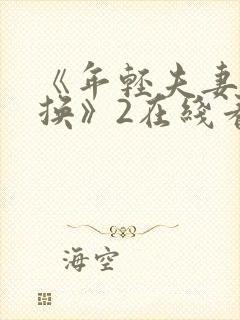 《年轻夫妻
换》2在线看
海空